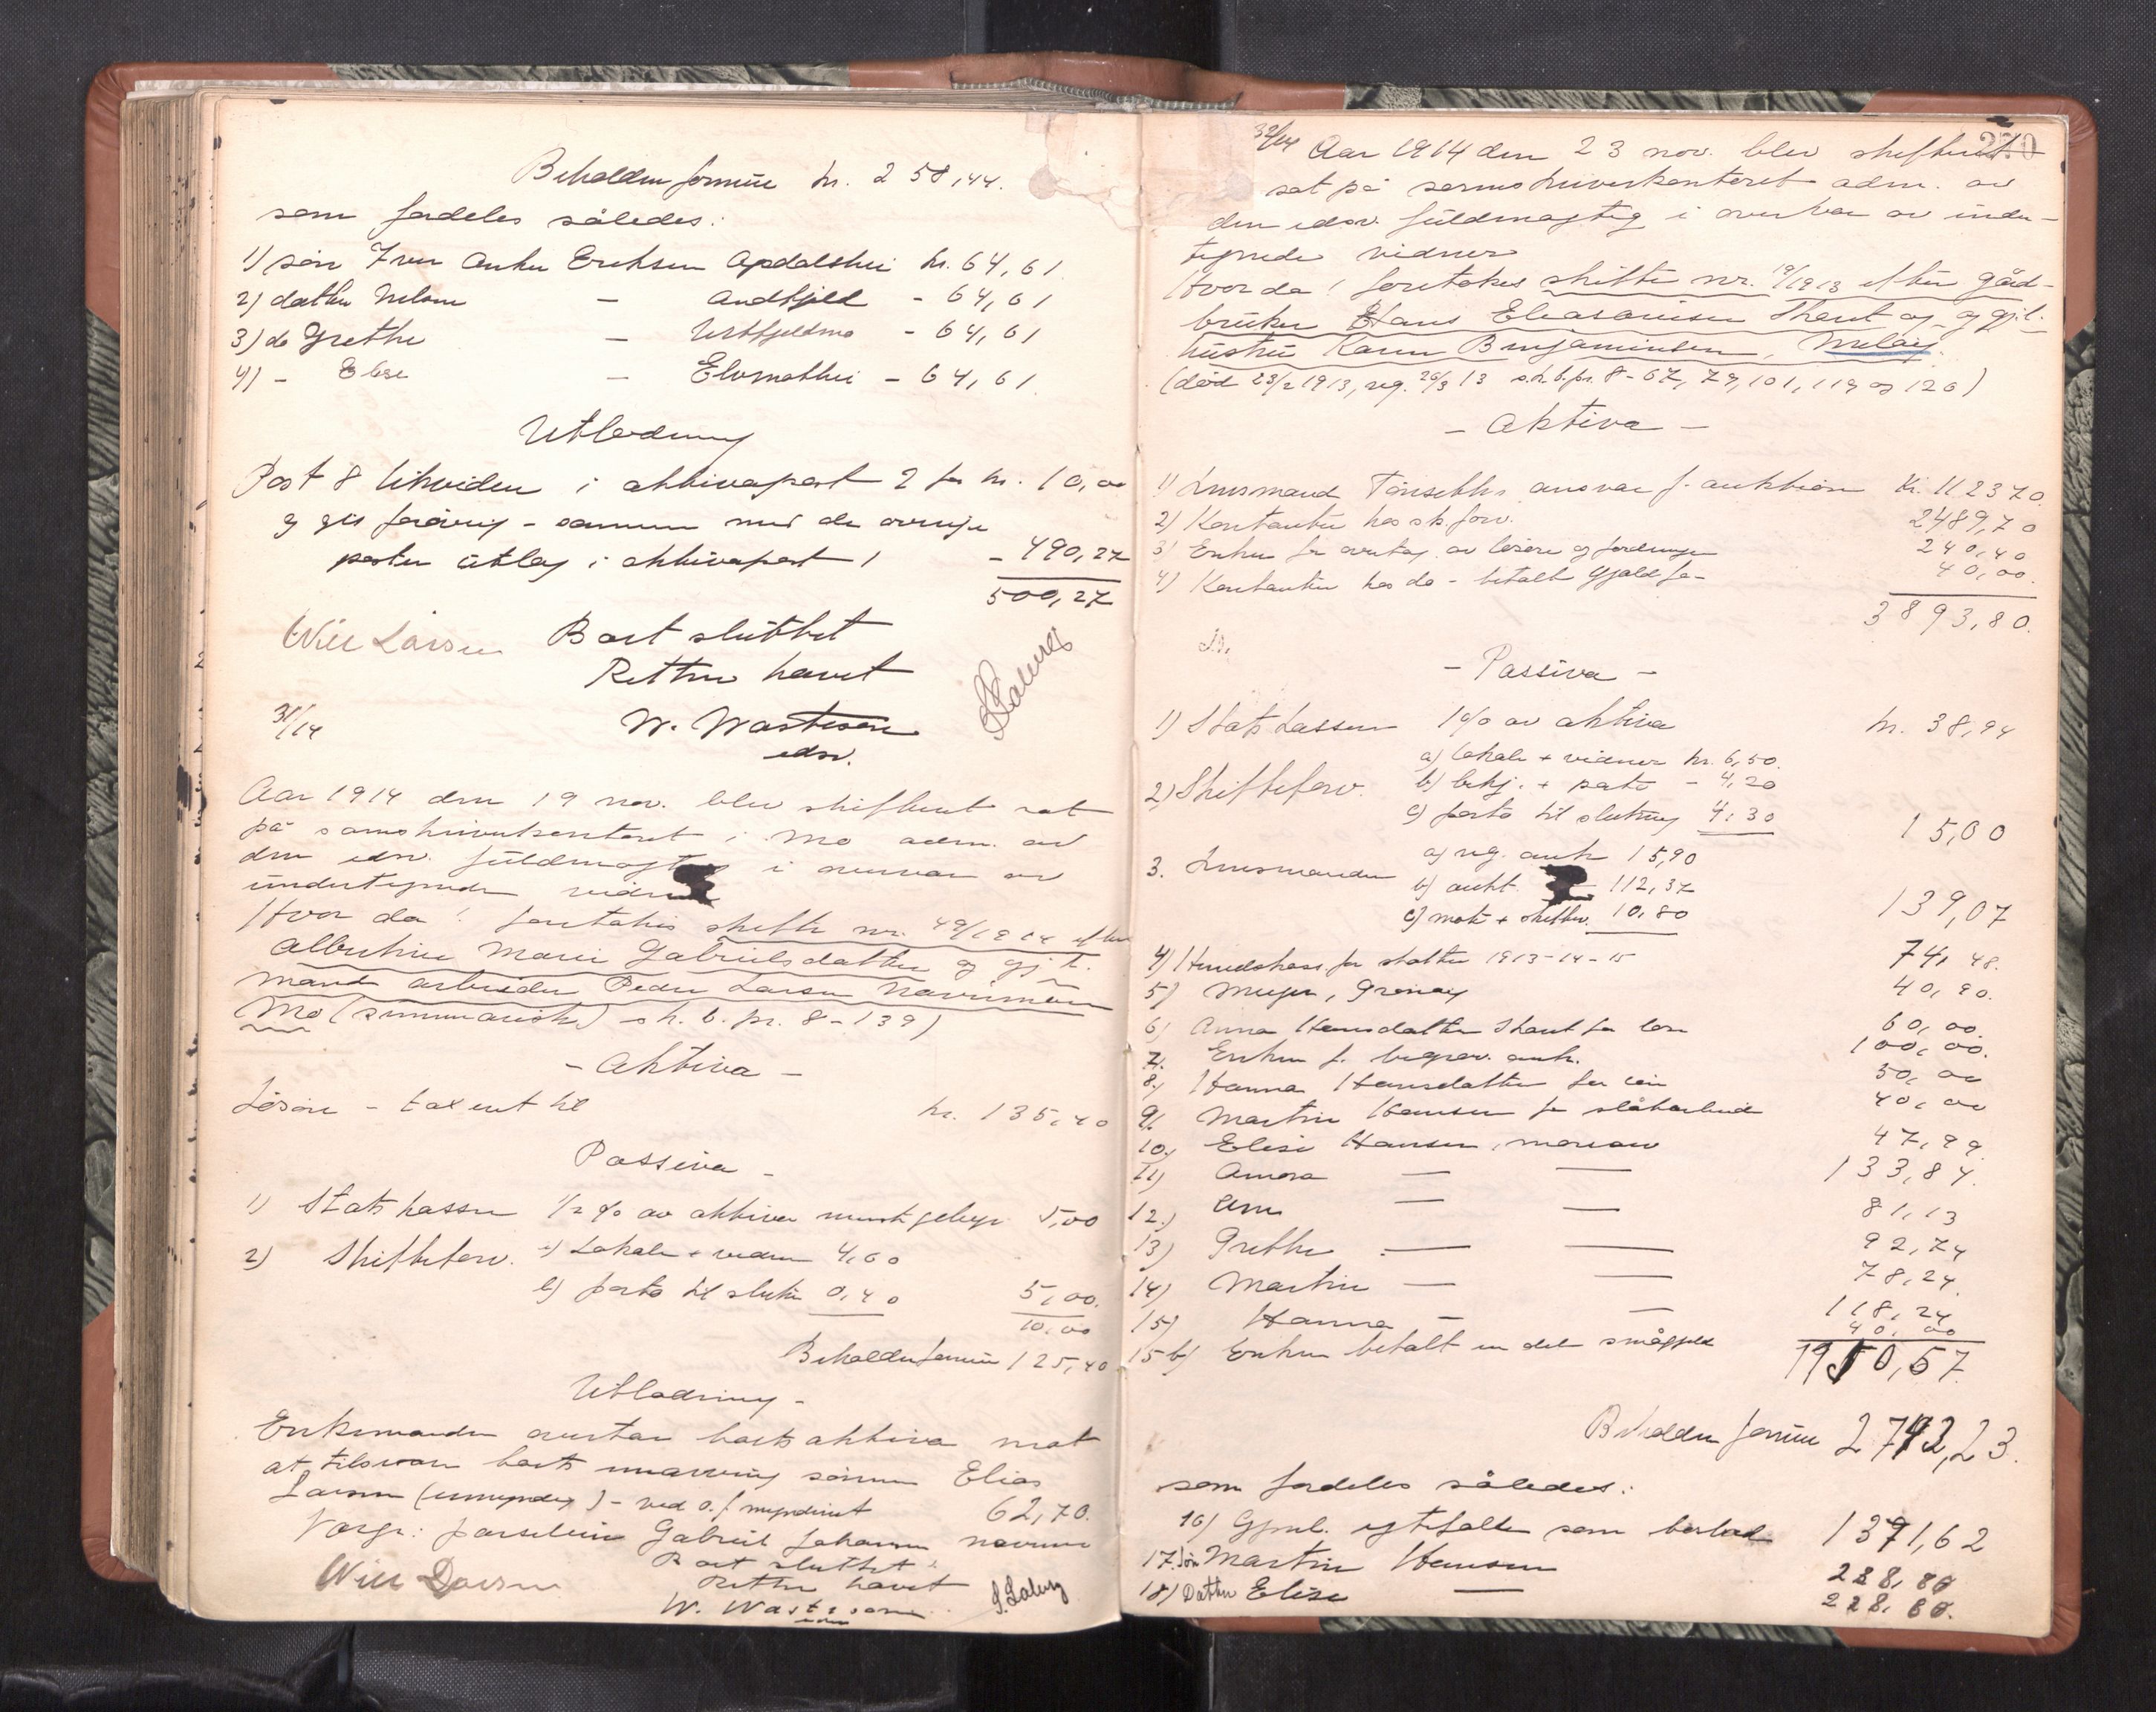 Beholden formue kr. 258,44.
som fordeles således:
1) søn Iver Anker Eriksen Apdalshei kr. 64,61
2) datter — Andfjeld - 64,61
3) do Grethe — Urtfjeldmo - 64,61
4) - Elise — - 64,61
Utlodning
Post 8 likviden i aktivapost 2 for kr. 10,00
og gis forøvrig - sammen med de øvrige
poster utlæg i aktivapost 1 - 490,27
500,27
Will Larsen Boet sluttet
Retten hævet
31/14 W. Wasteson
edsv.
Aar 1914 den 19 nov. blev skifteret sat
på sorenskriverkontoret i Mo adm. av
den edsv. fuldmægtig i overvær av
undertegnede vidner
Hvorda: foretokes skifte nr. 49/1914 efter
Albertine Marie Gabrielsdatter og gj.l.
mand arbeider Peder Larsen Navrimoen
Mo (summarisk) sk. b. pr. 8 - 139)
- Aktiva -
Løsøre - taxert til kr. 135,40
Passiva -
1) Statskassen 1/2 % av aktiva minste gebyr 5,00
2) Skifteforv. a) Lokale + vidner 4,60
b) porto til slutn 0,40 5,00.
10,00
Beholden formue 125,40
Utlodning -
Enkemanden overtar boets aktiva mot
at tilsvare boets umyndig sønnen Elias
Larsen (umyndig) - ved o.f. myndient 62,70.
Værge: Gabriel Johansen
Boet sluttet
Retten hævet
Will Larsen
W. Wasteson
edsv
270
32/14 Aar 1914 den 23 nov. blev skifteret
sat på sorenskriverkontoret adm. av
den edsv. fuldmægtig i overvær av under-
tegnede vidner
Hvorda: foretokes skifte nr. 19/1913 efter gård-
bruker Hans Eliasariusen Skant og og gj.l.
hustru Karen Benjaminsen, Meløy.
(død 23/2 1913, reg. 26/3 13 s.k.b.pr. 8 - 67, 79, 101, 119 og 126)
- Aktiva -
1) Lensmand ansvar f. auktion Kr. 1123,70.
2) Kontanter hos sk.forv. 2489,70
3) Enken for overtag. av løsøre og fordringer 240,40
4) Kontanter hos do - betalt gjæld for - 40,00.
3893,80.
- Passiva -
1) Statskassen 1% av aktiva kr. 38,94
a) lokale + vidner kr. 6,50.
2) Skifteforv. b) bekj. + porto - 4,20
c) porto til slutning 4,30 15,00
3. Lensmanden a) reg. auk 15,90
b) aukt. 112,37
c) møte + skiftev. 10,80 139,07
4) Herredskass. for skatter 1913-14-15 74,48.
5) Meyer, Grønøy 40,90.
6) Anna Hansdatter Skant for løn 60,00
7. Enken f. begrav. omk. 100,00.
8) Hanna Hansdatter for løn 50,00
9. Martin Hansen for slåtarbeid 40,00
10) Elise Hansen, morsarv 47,99
11) Amora — — 133,84.
12.) Ane — — 81,13
13) Grethe — — 92,74
14) Martin — — 78,24
15) Hanna — — 118,24
15b) Enken betalt en del smågjæld 40,00
1950,57
Beholden formue 2742,23.
som fordeles således:
16) Gjenl. egtefælle som boslod 1371,62
17. Søn Martin Hansen 228,60
18) Datter Elise — 228,60.